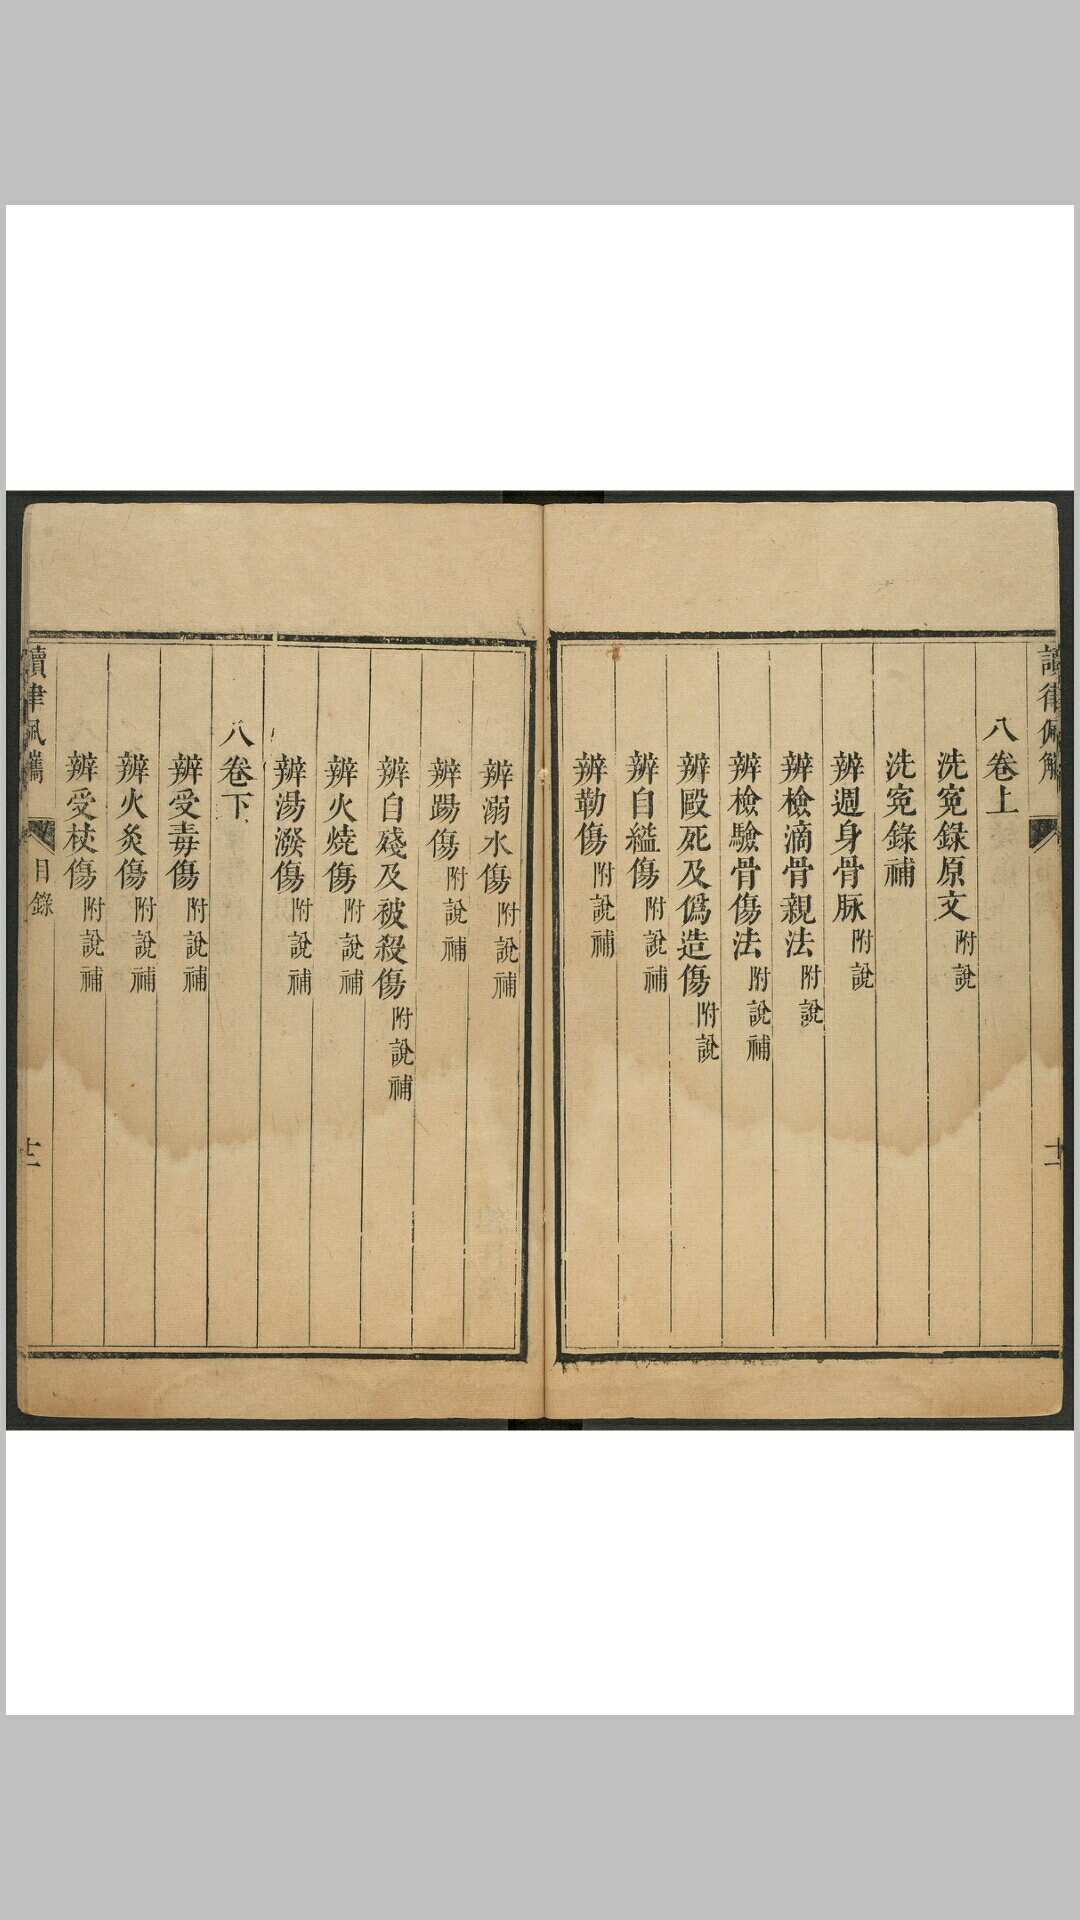 讀律佩觿
十一
八卷上
洗寃錄原文附說
洗寃錄補
辨週身骨脉附說
辨檢滴骨親法附說
辨檢驗骨傷法附說補
辨毆死及僞造傷附說
辨自縊傷附說補
辨勒傷附說補
辨溺水傷附說補
辨踢傷附說補
辨自殘及被殺傷附說補
辨火燒傷附說補
辨湯潑傷附說補
八卷下
辨受毒傷附說補
辨火灸傷附說補
辨受杖傷附說補
讀律佩觿
目錄
十二